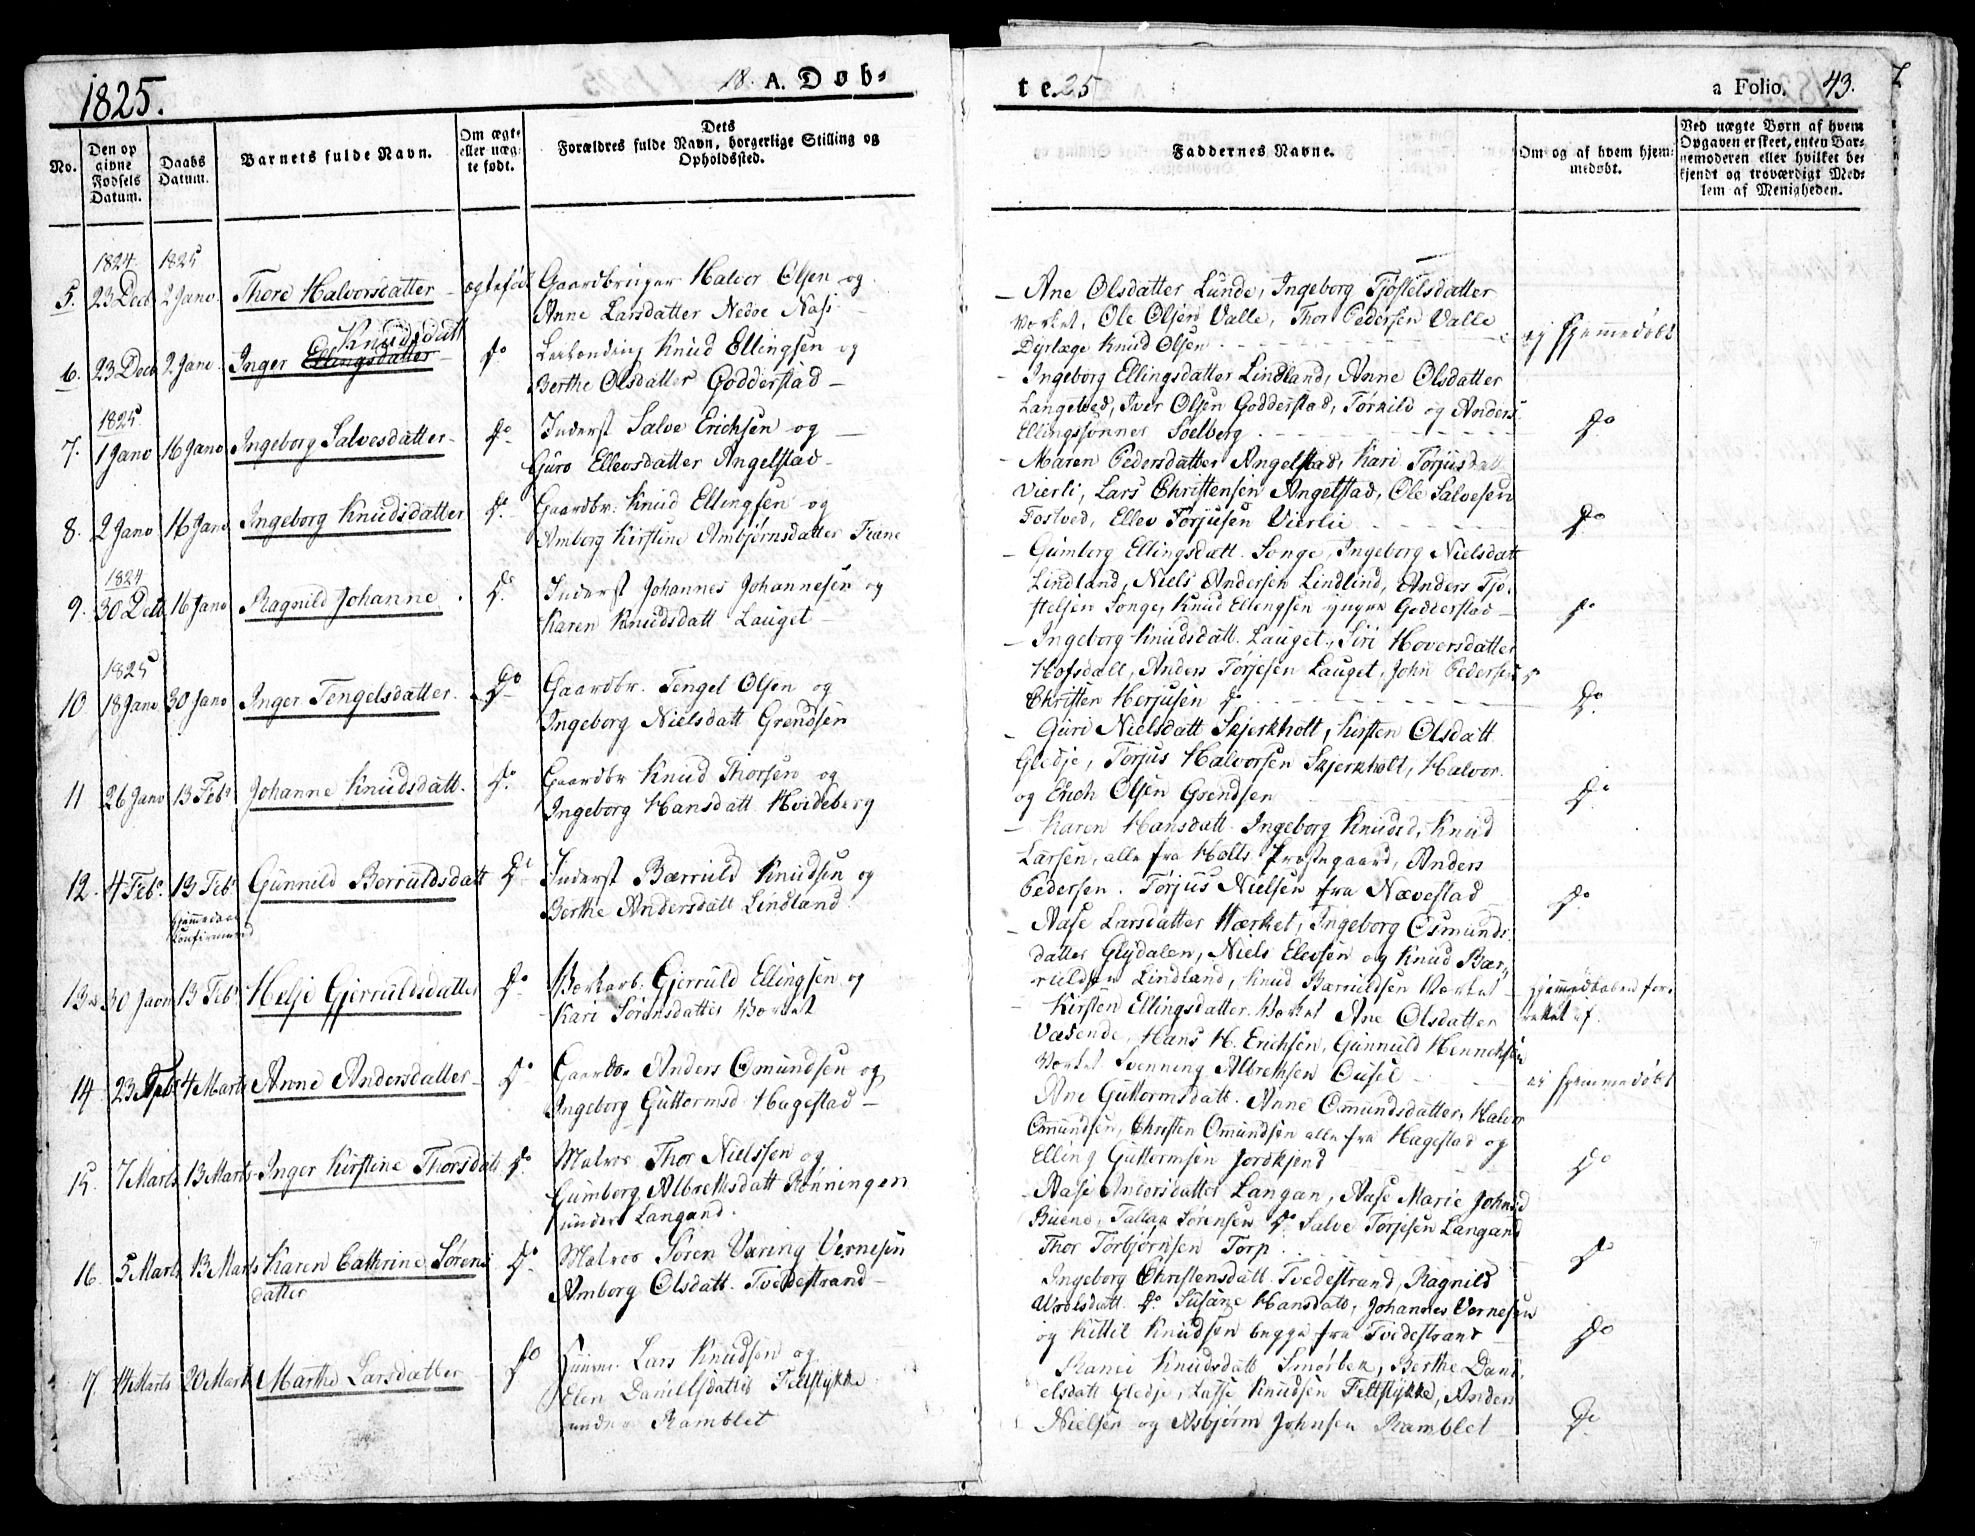 1825.
18. A. Døb-
te 25
a Folio. 43.
No.
Den op
givne
Fødsels
Datum.
Daabs
Datum.
Barnets fulde Navn.
Om ægte
eller uæg-
te født.
Dets
Forældres fulde Navn, borgerlige Stilling og
Opholdssted.
Faddernes Navne.
Om og af hvem hjem-
medøbt.
Ved uægte Børn af hvem
Opgaven er skeet, enten Bar-
nemoderen eller hvilket be-
kjendt og troværdigt Med-
lem af Menigheden.
1824 1825
5. 23 Decb 2 Jano Thore Halvorsdatter ægtefød Gaardbruger Halvor Olsen og
Anne Larsdatter Nedre Næs
Knudsdatt
6. 23 Decb 2 Jano Inger Ellingsdatter do Knud Ellingsen og
Berthe Olsdatter Godderstad
1825
7. 1 Jano 16 Jano Ingeborg Salvesdatter do Inderst Salve Erichsen og
Guro Ellevsdatter Angelstad
8. 2 Jano 16 Jano Ingeborg Knudsdatter do Gaardbr: Knud Ellingsen og
Amborg Kirstine Ambjørnsdatter Fiane
1824
9. 30 Decb 16 Jano Ragnild Johanne do Inderst Johannes Johannesen og
Karen Knudsdatt Lauget
1825
10 18 Jano 30 Jano Inger Tengelsdatter do Gaardbr. Tengel Olsen og
Ingeborg Nielsdatt Grendsen
11 26 Jano 13 Febr Johanne Knudsdatt. do Gaardbr Knud Thorsen og
Ingeborg Hansdatt Hvideberg
12. 4 Febr. 13 Febr Gunnild Berruldsdatt do Inderst Bærruld Knudsen og
Berthe Andersdatt Lindland.
hjemmedaab
konfirmered
13 30 Jano 13 Febr Helje Gjerruldsdatter do Værkarb: Gjerruld Ellingsen og
Kari Sørensdatter Værket
14. 23 Febr 4 Marts Anne Andersdatter do Gaardbr Anders Omundsen og
Ingeborg Guttormsd. Hagestad
15. 7 Marts 13 Marts Inger Kirstine Thorsdatt do Matros Thor Nielsen og
Gumborg Albrethsdatt Rønningen
under Langand.
16. 5 Marts 13 Marts Karen Cathrine Sørens do Matros Søren Væring Vernesen
datter Amborg Olsdatt. Tvedestrand
17 14 Marts 20 Marts Marthe Larsdatter do Lars Knudsen og
Elen Danielsdatter Feltstykke
under Ramblet
Ane Olsdatter Lunde, Ingeborg Tjøstelsdatter
Værket, Ole Olsen Valle, Thor Pedersen Valle
Dyrlæge Knud Olsen ej hjemmedøbt
Ingeborg Ellingsdatter Lindland, Anne Olsdatter
Langeved, Iver Olsen Godderstad, Tørkild og Anders
Ellingssønner Soelberg do
Maren Pedersdatter Angelstad, Kari Tørjusdatt
Vierli, Lars Christensen Angelstad, Ole Salvesen
Tostved, Ellev Torjusen Vierlie do
Gumborg Ellingsdatt. Songe, Ingeborg Nielsdatt
Lindland, Niels Andersen Lindlind, Anders Tjø-
stelsen Songe, Knud Ellingsen yngre Godderstad do
Ingeborg Knudsdatt. Lauget, Siri Hoversdatter
Hofsdall, Anders Tørjesen Lauget, John Pedersen
Christen Herjusen do do
Guri Nielsdatt Skjerkholt, Kirsten Olsdatt
Gledje, Torjus Halvorsen Skjerkholt, Halvor
og Erich Olsen Grendsen do
Karen Hansdatt. Ingeborg Knudsd, Knud
Larsen, alle fra Holts Præstegaard, Anders
Pedersen. Tørjus Nielsen fra Nævestad do
Aase Larsdatter Værket, Ingeborg Osmunds-
datter Glydalen, Niels Elevsen og Knud Bær-
ruldsen Lindland, Knud Bærruldsen Værket hjemmedaaben for-
rettet af
Kirsten Ellingsdatter Værket Ane Olsdatter
Vadende, Hans H. Erichsen, Gunnuld Henrichsen
Værket Svenning Albrethsen Ousel ej hjemmedøbt
Ane Guttormsdatt. Anne Omundsdatter, Halvor
Omundsen, Christen Omundsen alle fra Hagestad og
Elling Guttormsen Jordkjend do
Aase Andersdatter Langan, Aase Marie Johnsd
Buene, Tallak Sørensen do Salve Torjesen Langand
Thor Torbjørnsen Torp do
Ingeborg Christensdatt. Tvedestrand, Ragnild
do Susane Hansdatt, Johannes Vernesen
og Kittil Knudsen begge fra Tvedestrand do
Knudsdatt Smørbek, Berthe Dani-
elsdatt Gledje, Lasse Knudsen Feltstykke, Anders
Nielsen og Asbjørn Johnsen Ramblet do